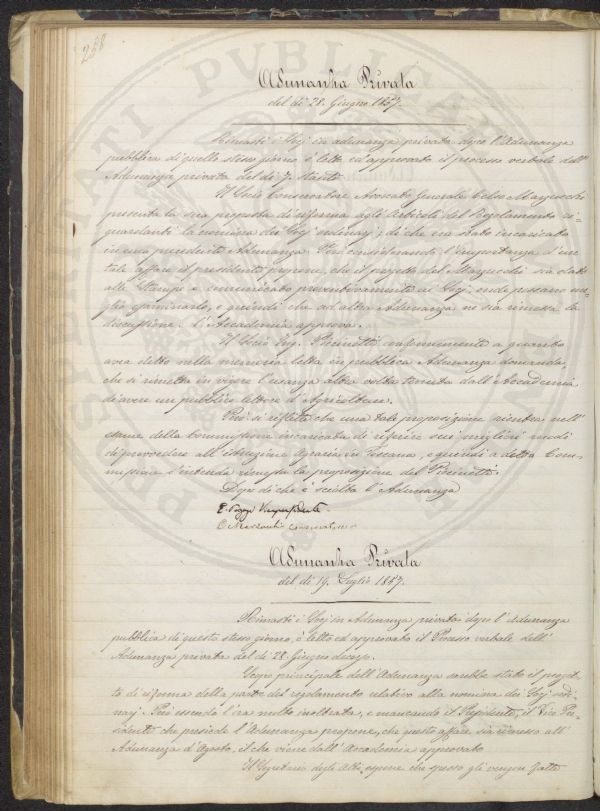 258
Adunanza Privata
del dì 28. Giugno 1857.
Rimasti i Socj in adunanza privata dopo l'Adunanza
pubblica di quello stesso giorno è letto ed approvato il processo verbale dell'
Adunanza privata del dì 7. stante.
Il Socio Conservatore Avvocato Generale Celso Marzucchi
presenta la sua proposta di riforma agli Articoli del Regolamento ri-
guardanti la nomina dei Socj ordinarj, di che era stato incaricato
in una precedente Adunanza. Però considerando l'importanza d'un
tale affare il presidente propone, che il progetto del Marzucchi sia dato
alle Stampe e comunicato preventivamente ai Socj, onde possano me-
glio esaminarlo, e quindi che ad altra Adunanza ne sia rimessa la
discussione. L'Accademia approva.
Il Socio Ing. conformemente a quanto
avea detto nella memoria letta in pubblica Adunanza domanda,
che si rimetta in vigore l'usanza altra volta tenuta dall'Accademia
di avere un pubblico lettore d'Agricoltura.
Però si riflette che una tale proposizione rientra nell'
esame della Commissione incaricata di riferire sui migliori modi
di provvedere all'istruzione Agraria in Toscana, e quindi a detta Com-
missione s'intenda rimessa la proposizione del
Dopo di che è sciolta l'Adunanza
E. Poggi Vicepresidente
C. Marzucchi Conservatore
Adunanza Privata
del dì 19. Luglio 1857.
Rimasti i Socj in Adunanza privata dopo l'Adunanza
pubblica di questo stesso giorno, è letto ed approvato il Processo verbale dell'
Adunanza privata del dì 28. Giugno decorso.
Scopo principale dell'Adunanza sarebbe stato il proget-
to di riforma della parte del regolamento relativo alla nomina dei Socj ordi-
narj. Però essendo l'ora molto inoltrata, e mancando il Presidente, il Vice Pre-
sidente che presiede l'Adunanza propone, che questo affare sia rimesso all'
Adunanza d'Agosto, il che viene dall'Accademia approvato
Il Segretario degli Atti espone che spesso gli vengon fatte